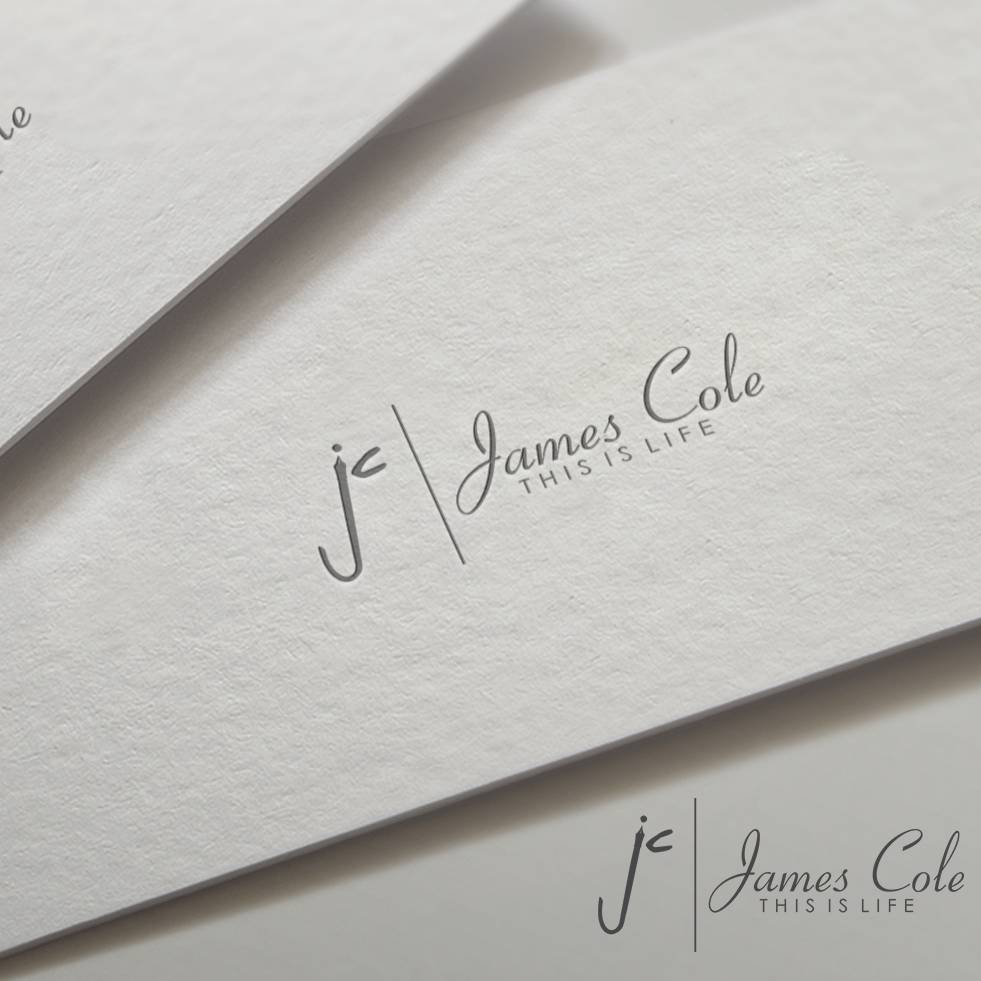 jc
James Cole
THIS IS LIFE
jc
James Cole
THIS IS LIFE